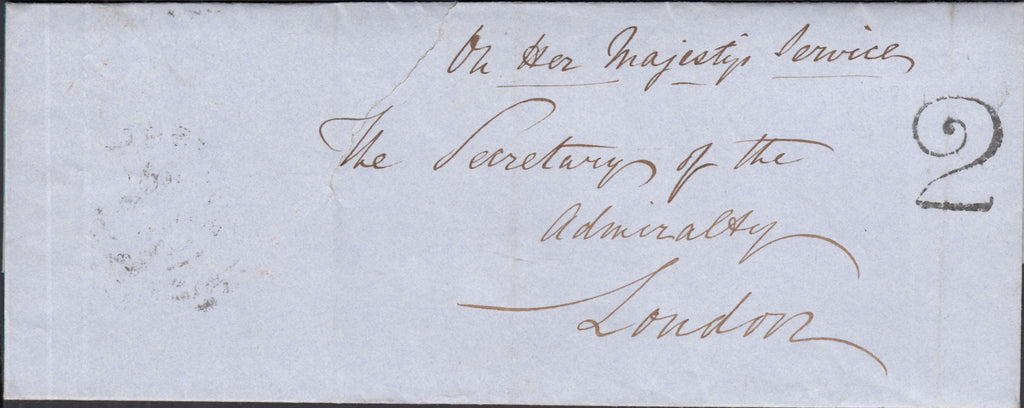 On Her Majestys Service
The Secretary of the
Admiralty
London
2